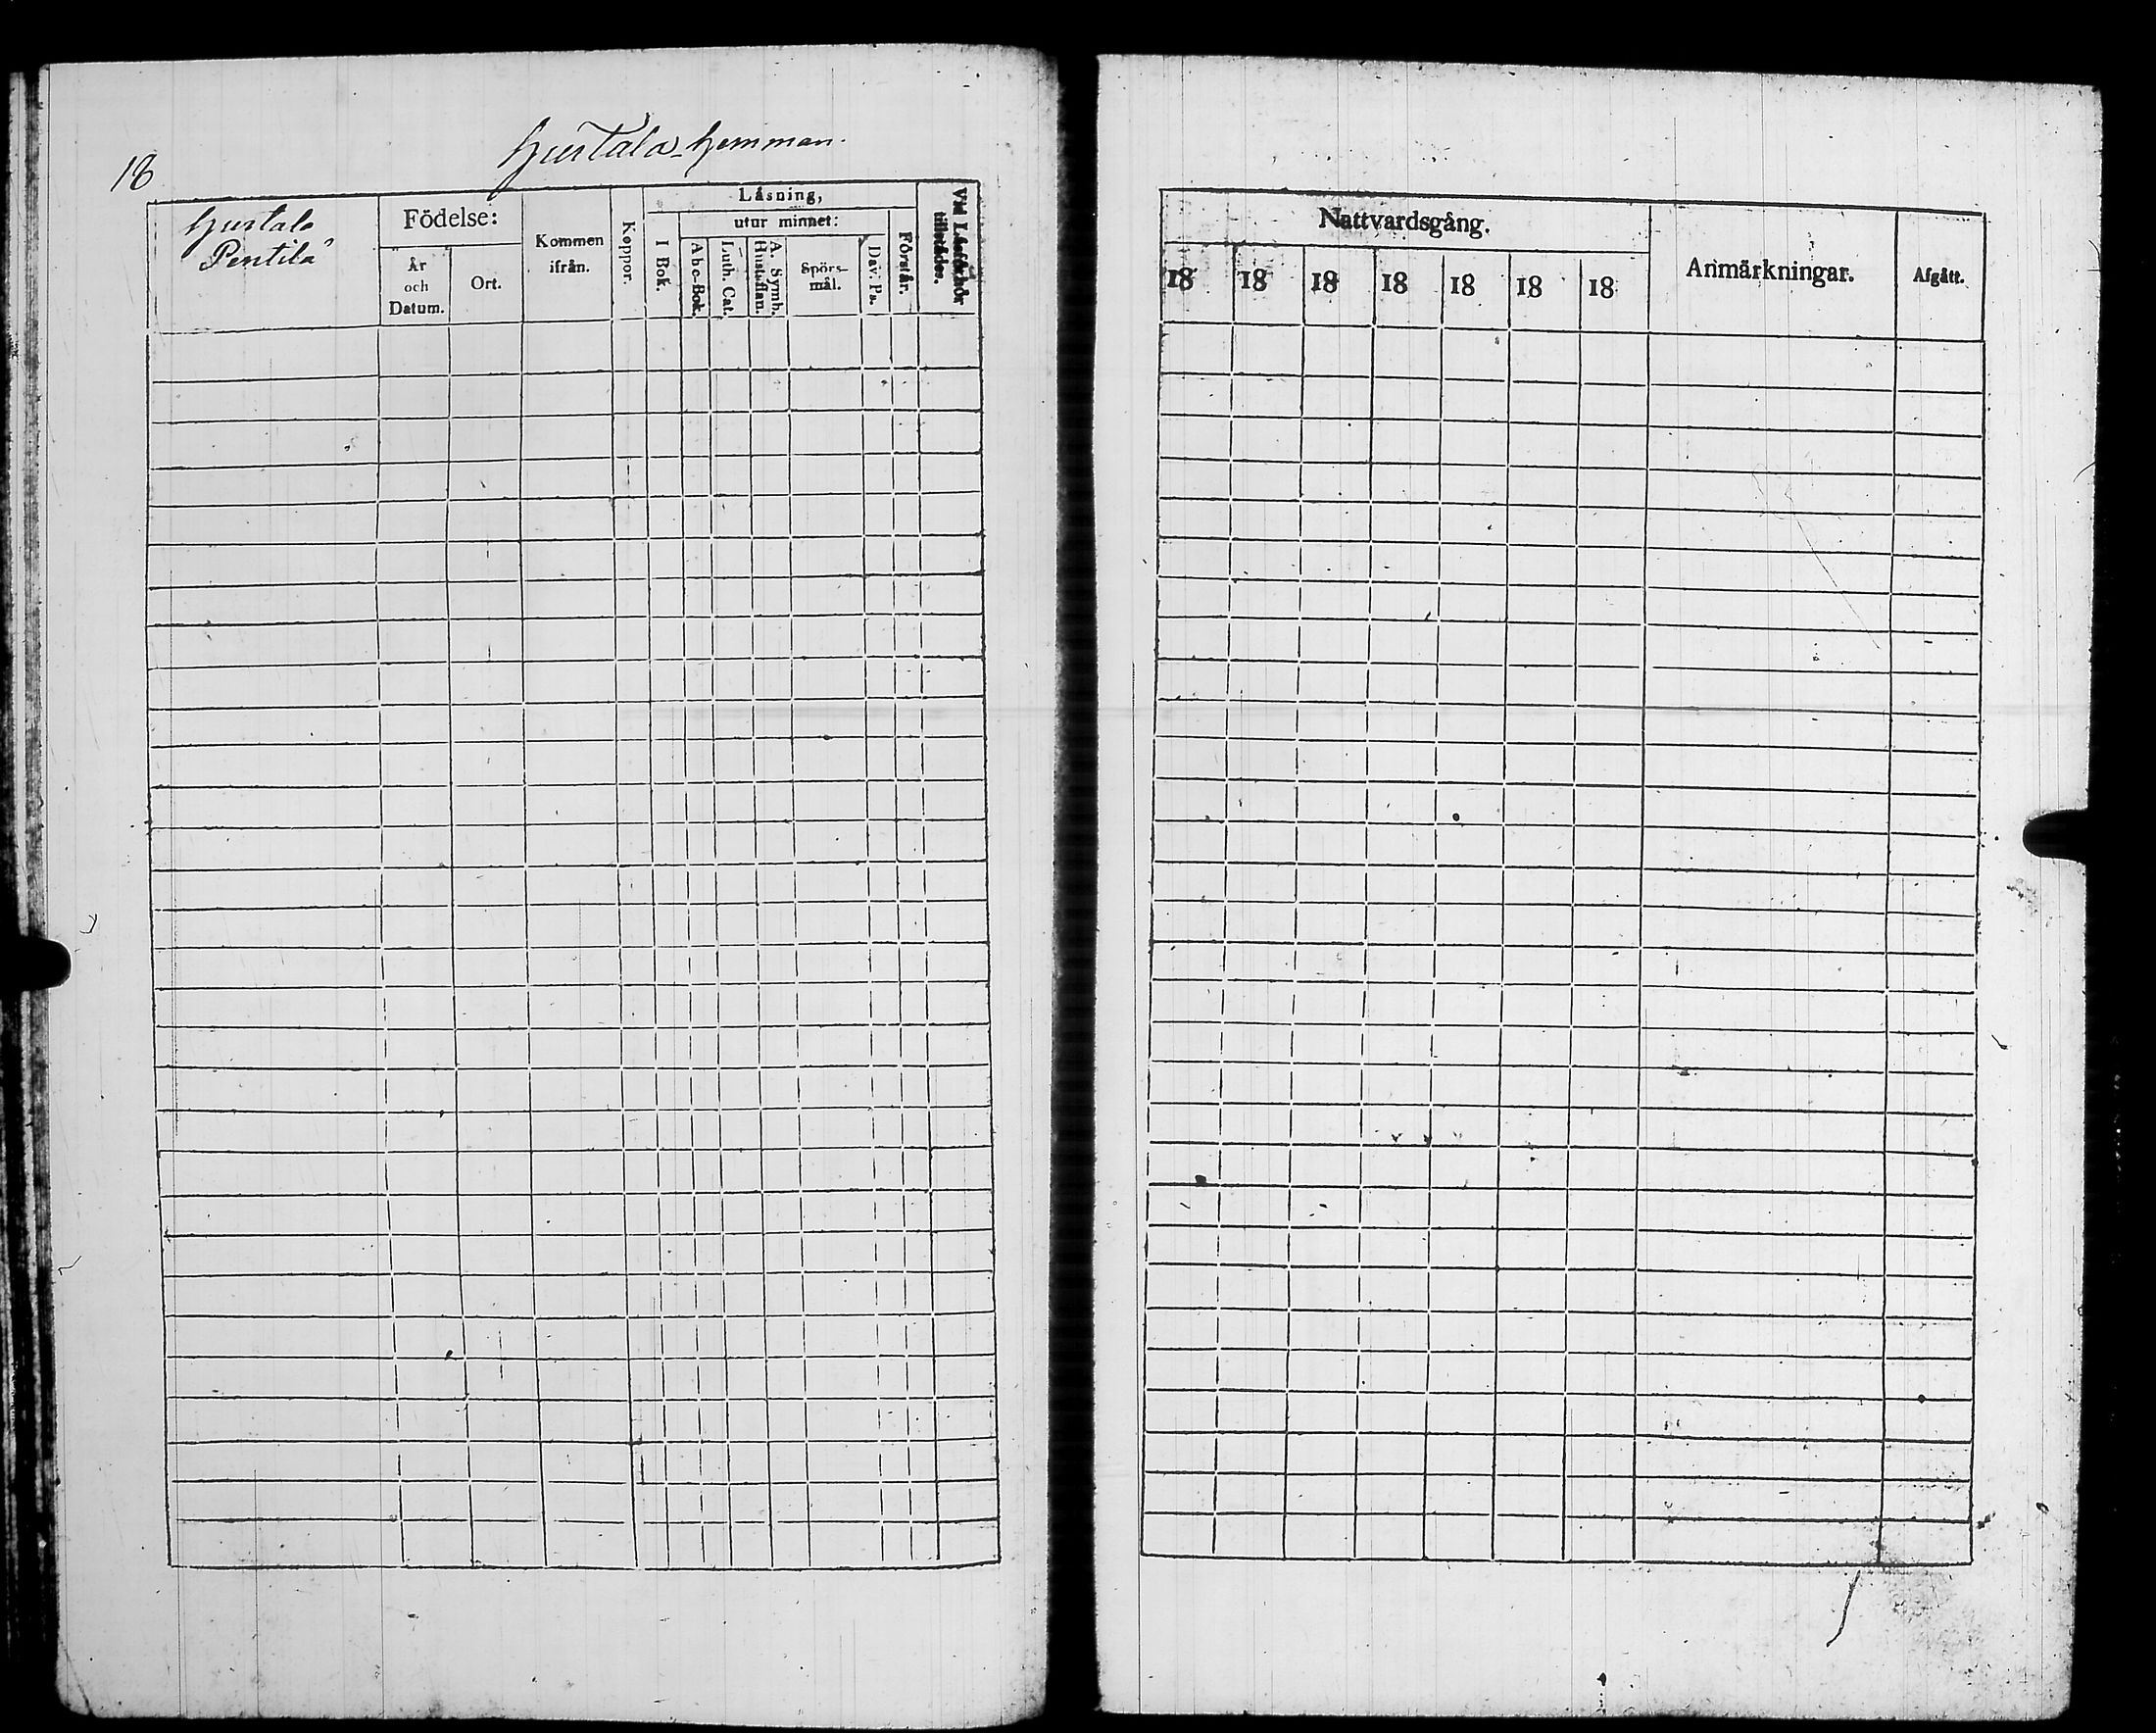 18
Hurtala hemman.
Hurtala
Pentilä
Födelse:
År
och
Datum.
Ort.
Kommen
ifrån.
Koppor.
Läsning,
I Bok.
utur minnet:
Abc-Bok.
Luth. Cat.
A. Symb.
Hustaflan.
Spörs-
mål.
Dav. Ps.
Förstår.
Vid Läsförhör
tillstädes.
Nattvardsgång.
18 18 18 18 18 18 18
Anmärkningar.
Afgått.